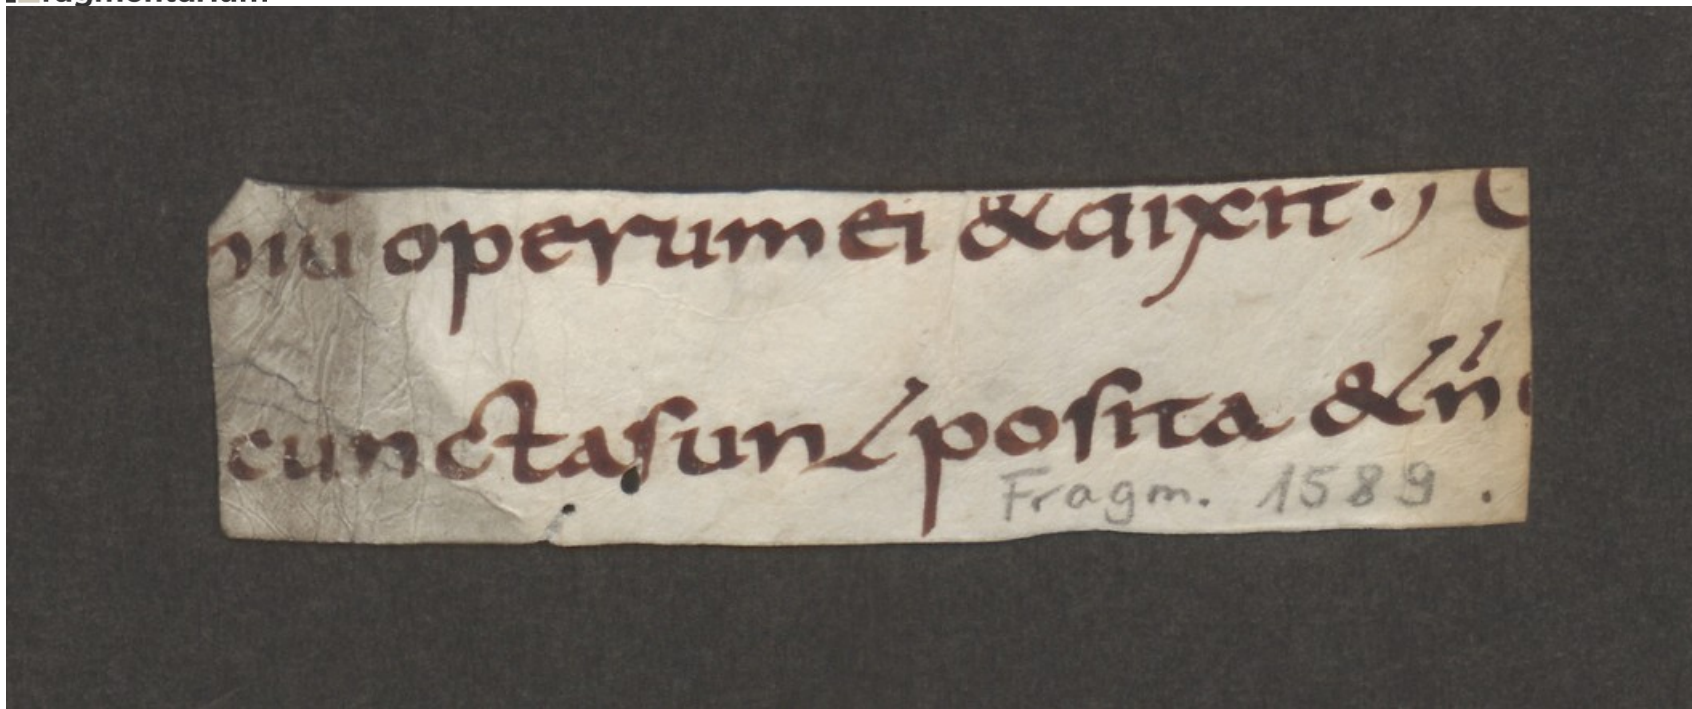 niū operum ei & dixit ·,
cuncta sunt posita & n̄
Fragm. 1589.